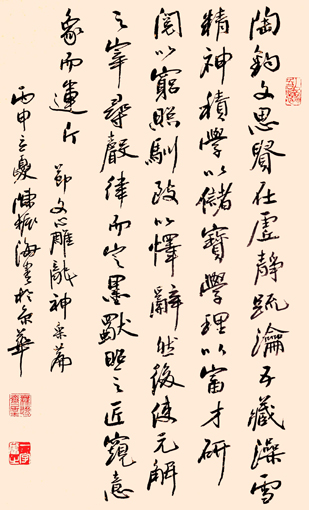 陶鈞文思貴在虛靜疏瀹五藏澡雪
精神積學以儲寶酌理以富才研
閱以窮照馴致以懌辭然後使元解
之宰尋聲律而定墨獨照之匠窺意
象而運斤 節文心雕龍神思篇
丙申立夏陳振海書於京華